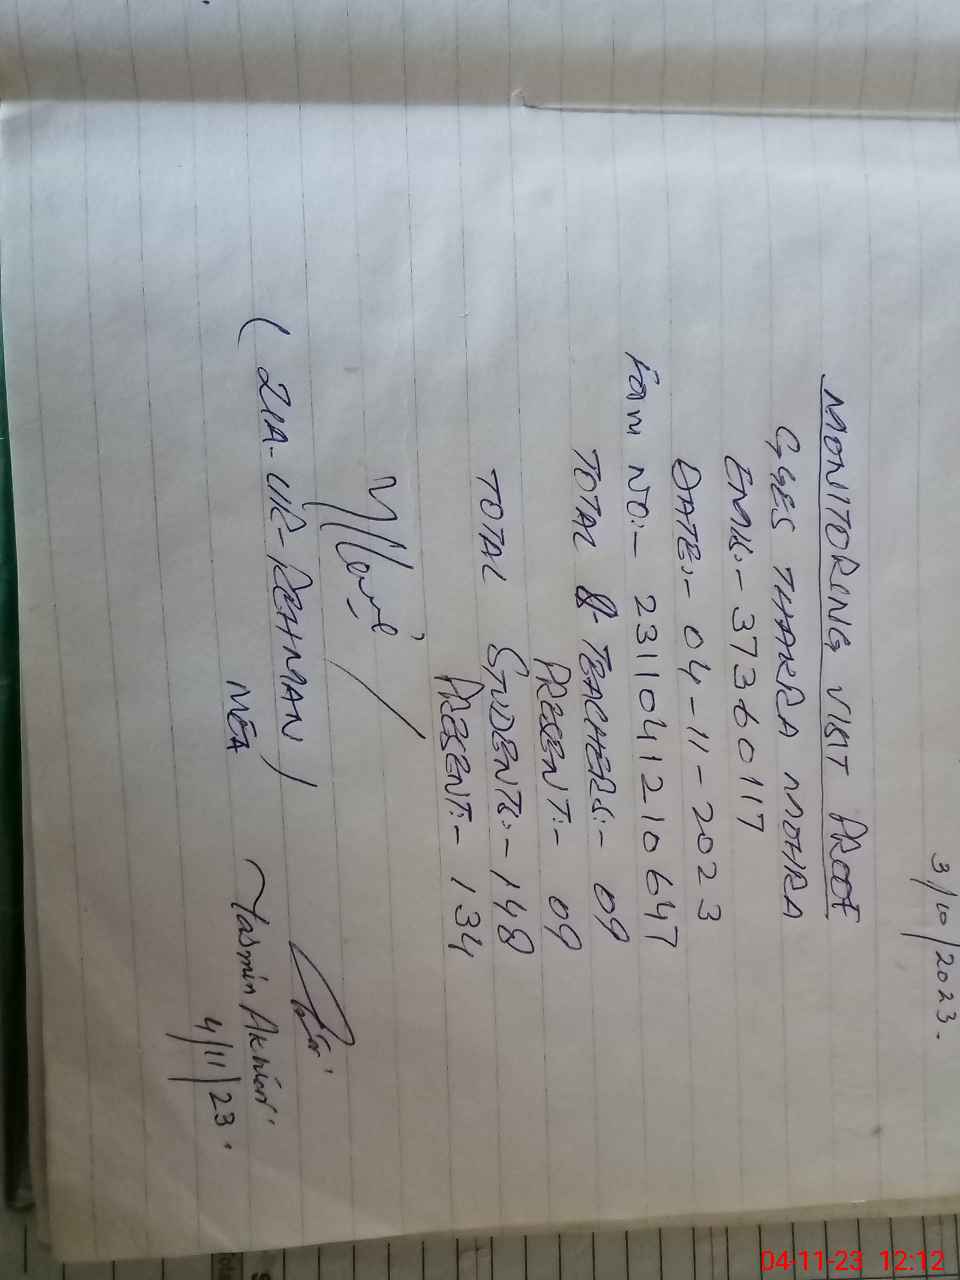 3/10/2023.
MONITORING VISIT PROOF
GGES THAKRA MOHRA
EMIS:- 37360117
DATE:- 04-11-2023
Form NO:- 2311041210647
TOTAL TEACHERS:- 09
PRESENT:- 09
TOTAL STUDENTS:- 148
PRESENT:- 134
(ZIA-UR-REHMAN)
MEA
Yasmin Akhtar
4/11/23.
04-11-23 12:12